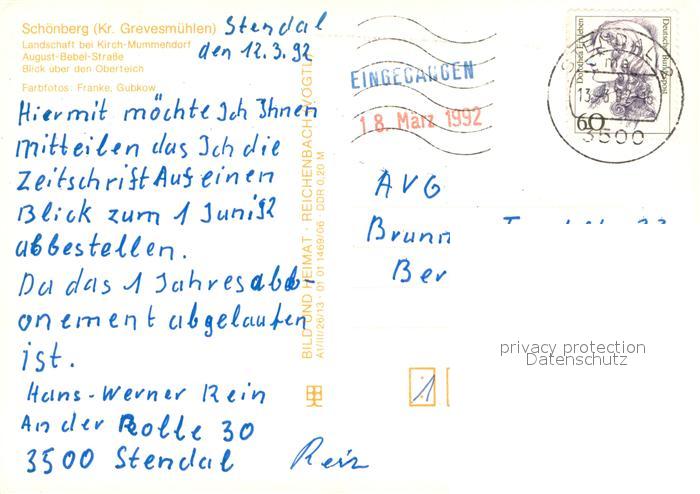 Schönberg (Kr. Grevesmühlen)
Landschaft bei Kirch-Mummendorf
August-Bebel-Straße
Blick über den Oberteich
Farbfotos: Franke, Gubkow
Stendal
den 12.3.92
Hiermit möchte Ich Ihnen
mitteilen das Ich die
Zeitschrift Auf einen
Blick zum 1 Juni 92
abbestellen.
Da das 1 Jahresabb-
onement abgelaufen
ist.
Hans-Werner Rein
An der Rolle 30
3500 Stendal
Rein
BILD UND HEIMAT · REICHENBACH (VOGTL)
A1/III/26/13 · 01 01 1469/06 · DDR 0,20 M
EINGEGANGEN
18. März 1992
Deutsche Bundespost
60
STENDAL
3500
AVG
Brunn
Ber
1
privacy protection
Datenschutz